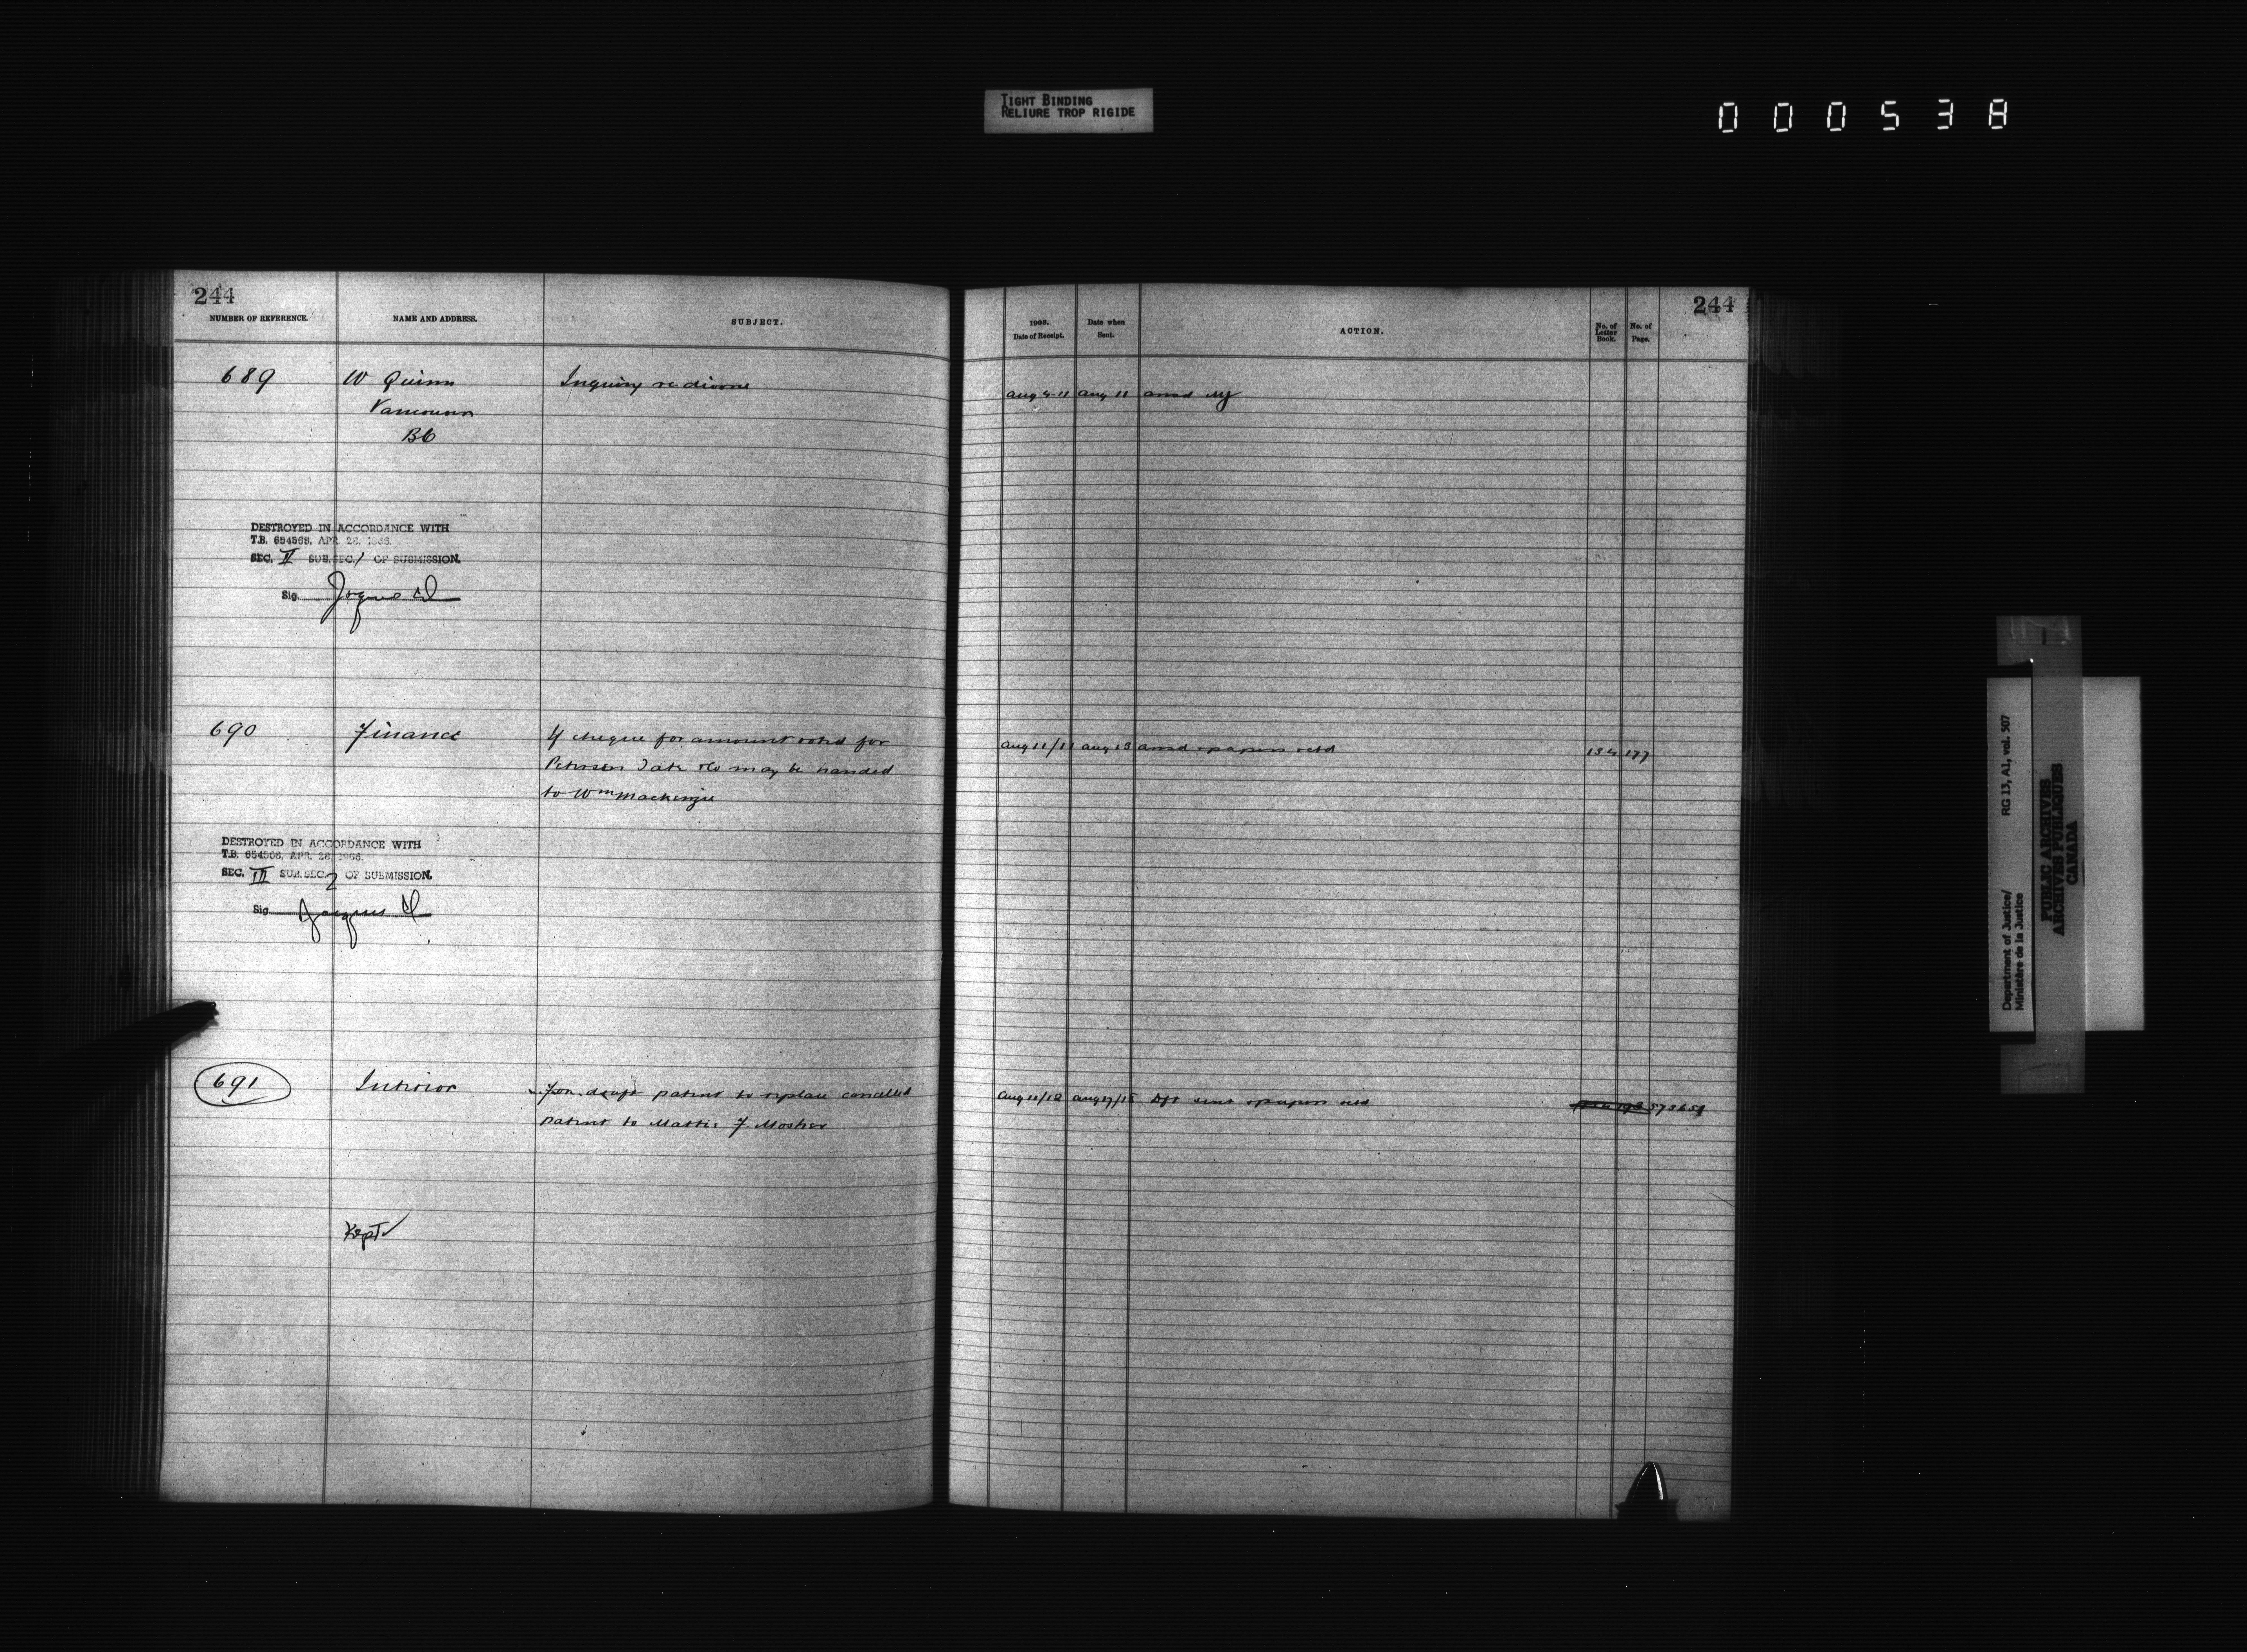 TIGHT BINDING
RELIURE TROP RIGIDE
000538
244
NUMBER OF REFERENCE.
NAME AND ADDRESS.
SUBJECT.
689
W Quinn
Inquiry re divorce
Vancouver
BC
DESTROYED IN ACCORDANCE WITH
T.B. 654568, APR. 26, 1966.
SEC. II SUB.SEC. 1 OF SUBMISSION.
Sig.
690
Finance
If cheque for amount voted for
Petersen Tate &Co may be handed
to Wm Mackenzie
DESTROYED IN ACCORDANCE WITH
T.B. 654568, APR. 26, 1966.
SEC. III SUB.SEC. 2 OF SUBMISSION.
Sig.
691
Interior
For draft patent to replace cancelled
patent to Mattie F Mosher
Kept
244
1903.
Date of Receipt.
Date when
Sent.
ACTION.
No. of
Letter
Book.
No. of
Page.
Aug 4-11 Aug 11 ansd
Aug 11/11 Aug 13 ansd & papers retd 134 177
Aug 11/12 Aug 17/15 Dft sent & papers retd
Department of Justice/ RG 13, A1, vol. 507
Ministère de la Justice
PUBLIC ARCHIVES
ARCHIVES PUBLIQUES
CANADA